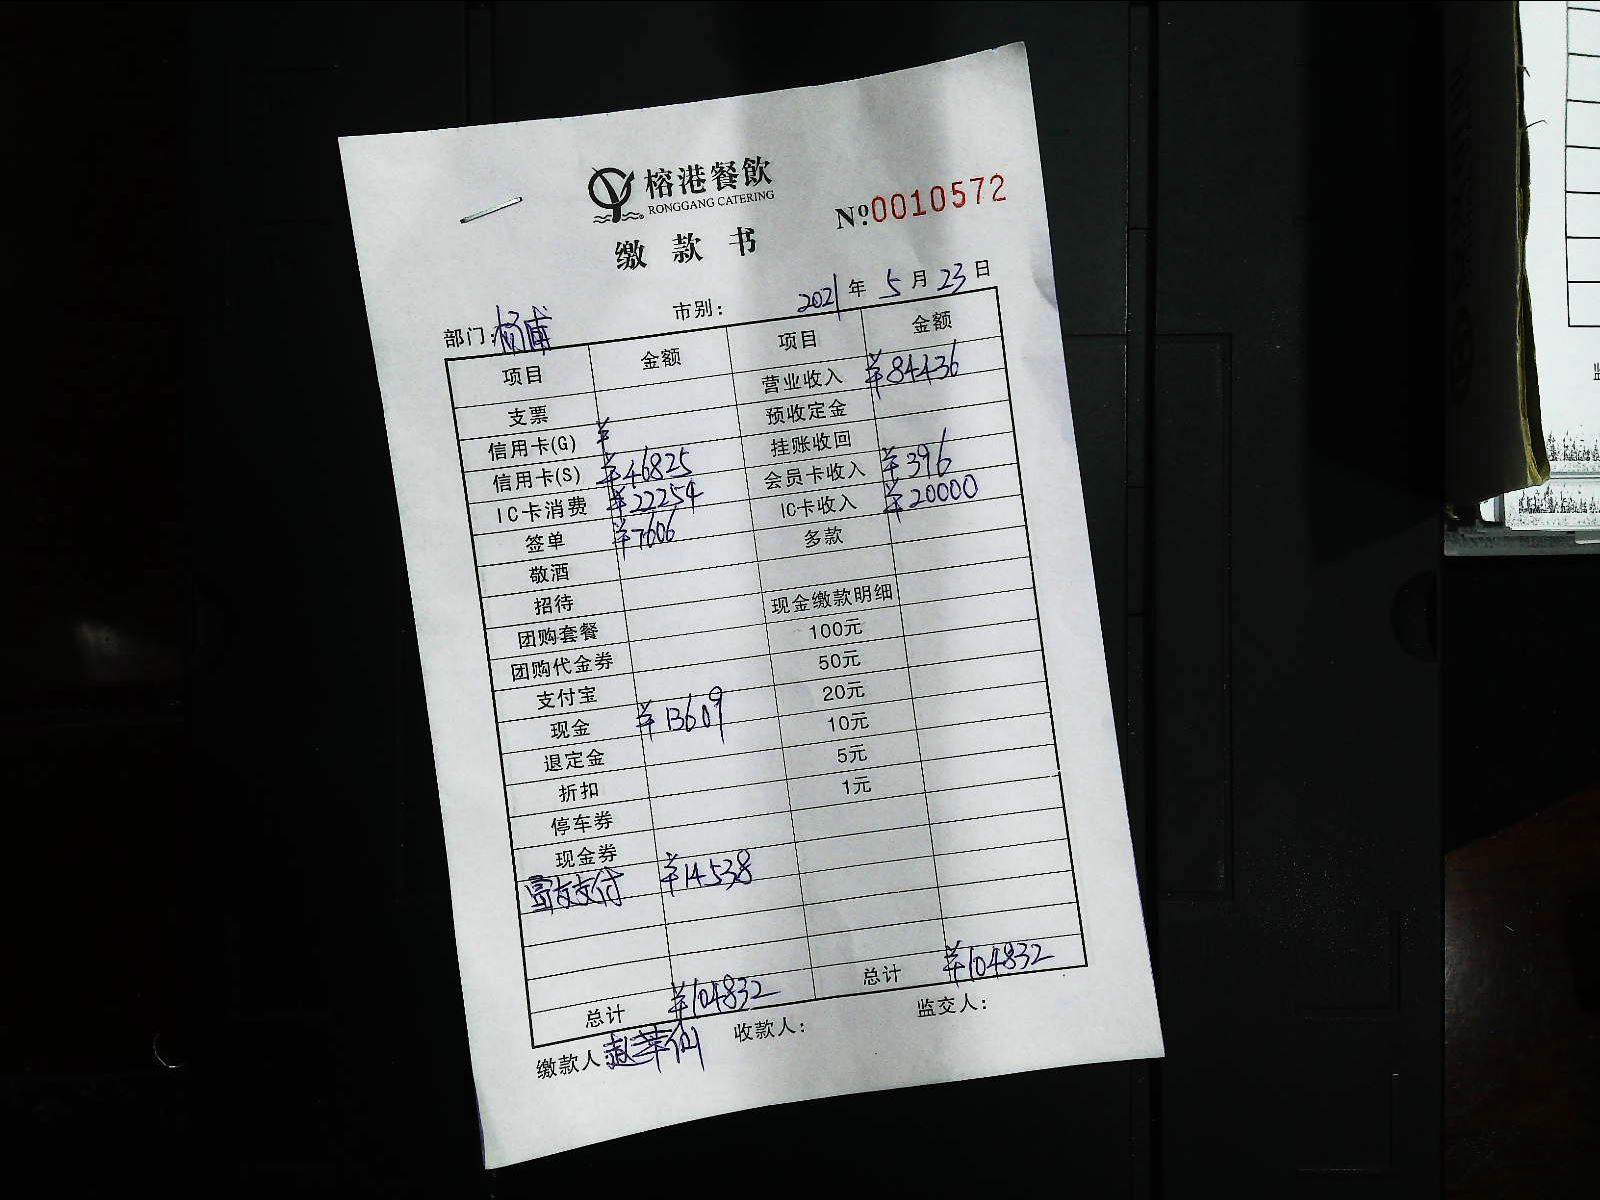 榕港餐飲
RONGGANG CATERING
缴款书
№:0010572
部门:杨浦 市别: 2021年5月23日
项目 金额 项目 金额
支票 营业收入 ¥84436
信用卡(G) ¥ 预收定金
信用卡(S) ¥46825 挂账收回
IC卡消费 ¥22254 会员卡收入 ¥396
签单 ¥7606 IC卡收入 ¥20000
敬酒 多款
招待
团购套餐 现金缴款明细
团购代金券 100元
支付宝 50元
现金 ¥13609 20元
退定金 10元
折扣 5元
停车券 1元
现金券
支付 ¥14538
总计 ¥104832 总计 ¥104832
缴款人:赵华仙 收款人: 监交人: